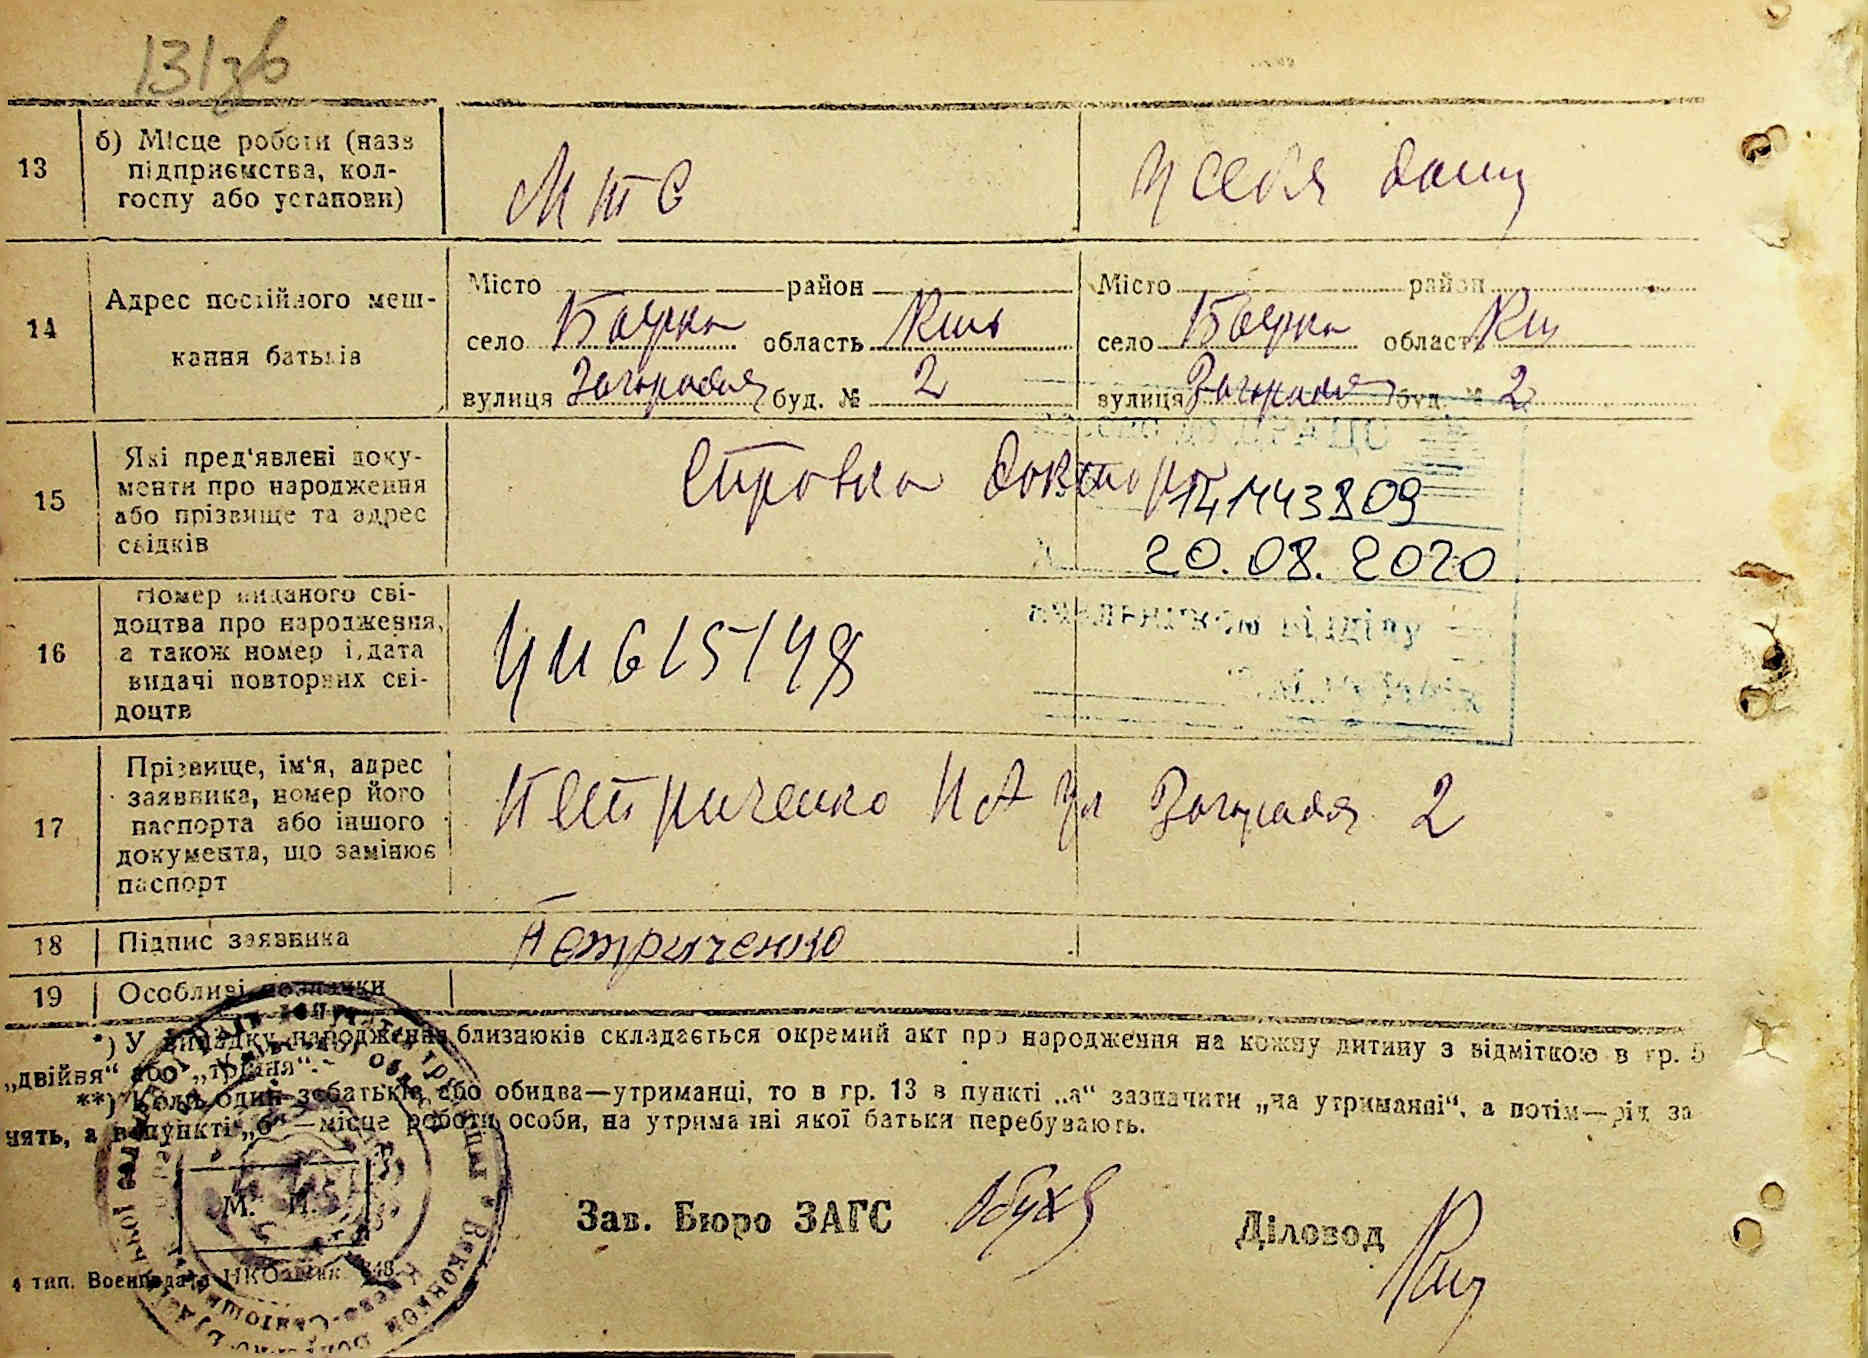 131зв
13
б) Місце роботи (назв
підприємства, кол-
госпу або установи)
М т с
у себя дому
14
Адрес постійного меш-
кання батьків
Місто район
село Боярка область Киів
вулиця Загородня буд. № 2
Місто район
село Боярка область Ки
вулиця Загородня буд. № 2
15
Які пред'явлені доку-
менти про народження
або прізвище та адрес
свідків
Справка доктора
14443809
20.08.2020
16
Номер виданого сві-
доцтва про народження,
а також номер і дата
видачі повторних сві-
доцтв
начальником відділу
17
Прізвище, ім'я, адрес
заявника, номер його
паспорта або іншого
документа, що замінює
паспорт
Петриченко И А ул Загородня 2
18
Підпис заявника
Петриченко
19
Особливі позначки
*) У випадку народження близнюків складається окремий акт про народження на кожну дитину з відміткою в гр. 5
„двійня“ або „трійня“.
**) Коли один з батьків або обидва—утриманці, то в гр. 13 в пункті „а“ зазначити „на утриманні“, а потім—рід за
нять, а в пункті „б“—місце роботи особи, на утриманні якої батьки перебувають.
М. П.
Зав. Бюро ЗАГС
Діловод
4 тип. Воениздата НКО